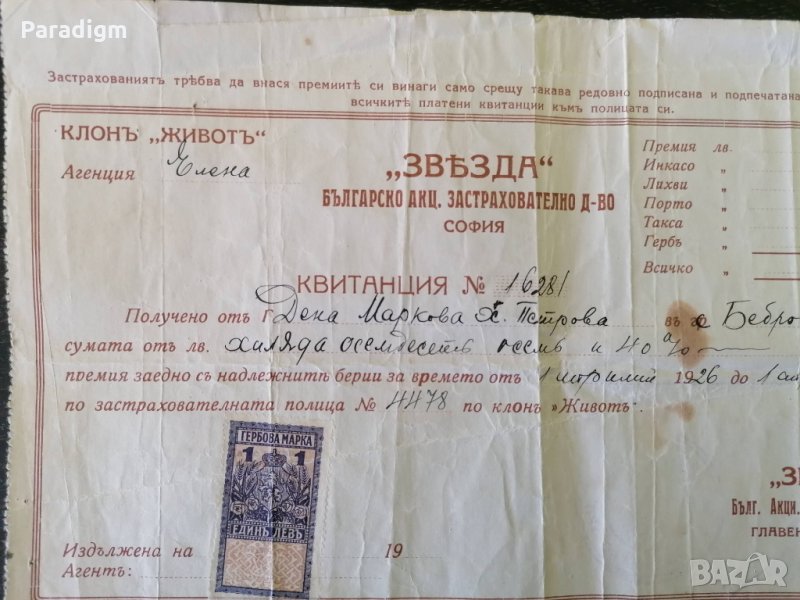 Paradigm
Застрахованиятъ трѣбва да внася премиитѣ си винаги само срещу такава редовно подписана и подпечатана
всичкитѣ платени квитанции къмъ полицата си.
КЛОНЪ „ЖИВОТЪ“
Агенция Елена
„ЗВѢЗДА“
БЪЛГАРСКО АКЦ. ЗАСТРАХОВАТЕЛНО Д-ВО
СОФИЯ
Премия лв.
Инкасо „
Лихви „
Порто „
Такса „
Гербъ „
Всичко „
КВИТАНЦИЯ № 16281
Получено отъ Г Дена Маркова х. Петрова въ с Бебро
сумата отъ лв. хиляда осемдесеть осемь и 40 %
премия заедно съ надлежнитѣ берии за времето отъ 1 1926 до 1
по застрахователната полица № 4478 по клонъ »Животъ«.
ГЕРБОВА МАРКА
1 1
ЕДИНЪ ЛЕВЪ
„ЗВ
Бълг. Акци.
ГЛАВЕН
Издължена на 19
Агентъ:
BAZAR